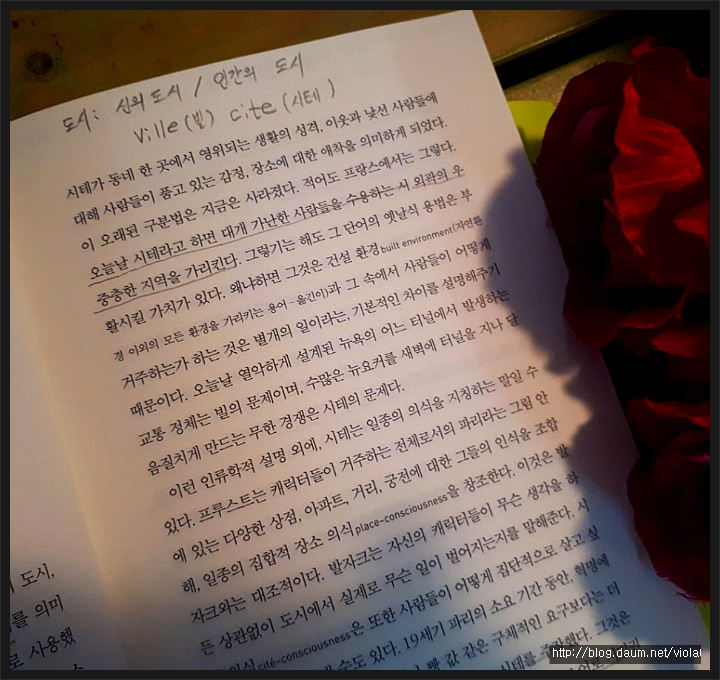 도시: 신의 도시 / 인간의 도시
ville(빌) cite(시테)
시테가 동네 한 곳에서 영위되는 생활의 성격, 이웃과 낯선 사람들에
대해 사람들이 품고 있는 감정, 장소에 대한 애착을 의미하게 되었다.
이 오래된 구분법은 지금은 사라졌다. 적어도 프랑스에서는 그렇다.
오늘날 시테라고 하면 대개 가난한 사람들을 수용하는 시 외곽의 우
중충한 지역을 가리킨다. 그렇기는 해도 그 단어의 옛날식 용법은 부
활시킬 가치가 있다. 왜냐하면 그것은 건설 환경built environment(자연환
경 이외의 모든 환경을 가리키는 용어-옮긴이)과 그 속에서 사람들이 어떻게
거주하는가 하는 것은 별개의 일이라는, 기본적인 차이를 설명해주기
때문이다. 오늘날 열악하게 설계된 뉴욕의 어느 터널에서 발생하는
교통 정체는 빌의 문제이며, 수많은 뉴요커를 새벽에 터널을 지나 달
음질치게 만드는 무한 경쟁은 시테의 문제다.
이런 인류학적 설명 외에, 시테는 일종의 의식을 지칭하는 말일 수
있다. 프루스트는 캐릭터들이 거주하는 전체로서의 파리라는 그림 안
에 있는 다양한 상점, 아파트, 거리, 궁전에 대한 그들의 인식을 조합
해, 일종의 집합적 장소 의식place-consciousness을 창조한다. 이것은 발
자크와는 대조적이다. 발자크는 자신의 캐릭터들이 무슨 생각을 하
든 상관없이 도시에서 실제로 무슨 일이 벌어지는지를 말해준다. 시
의식cité-consciousness은 또한 사람들이 어떻게 집단적으로 살고 싶
수도 있다. 19세기 파리의 소요 기간 동안, 혁명에
빵 값 같은 구체적인 요구보다는 더
시테를 주장했다. 그것은
도시,
를 의미
로 사용했
http://blog.daum.net/violai